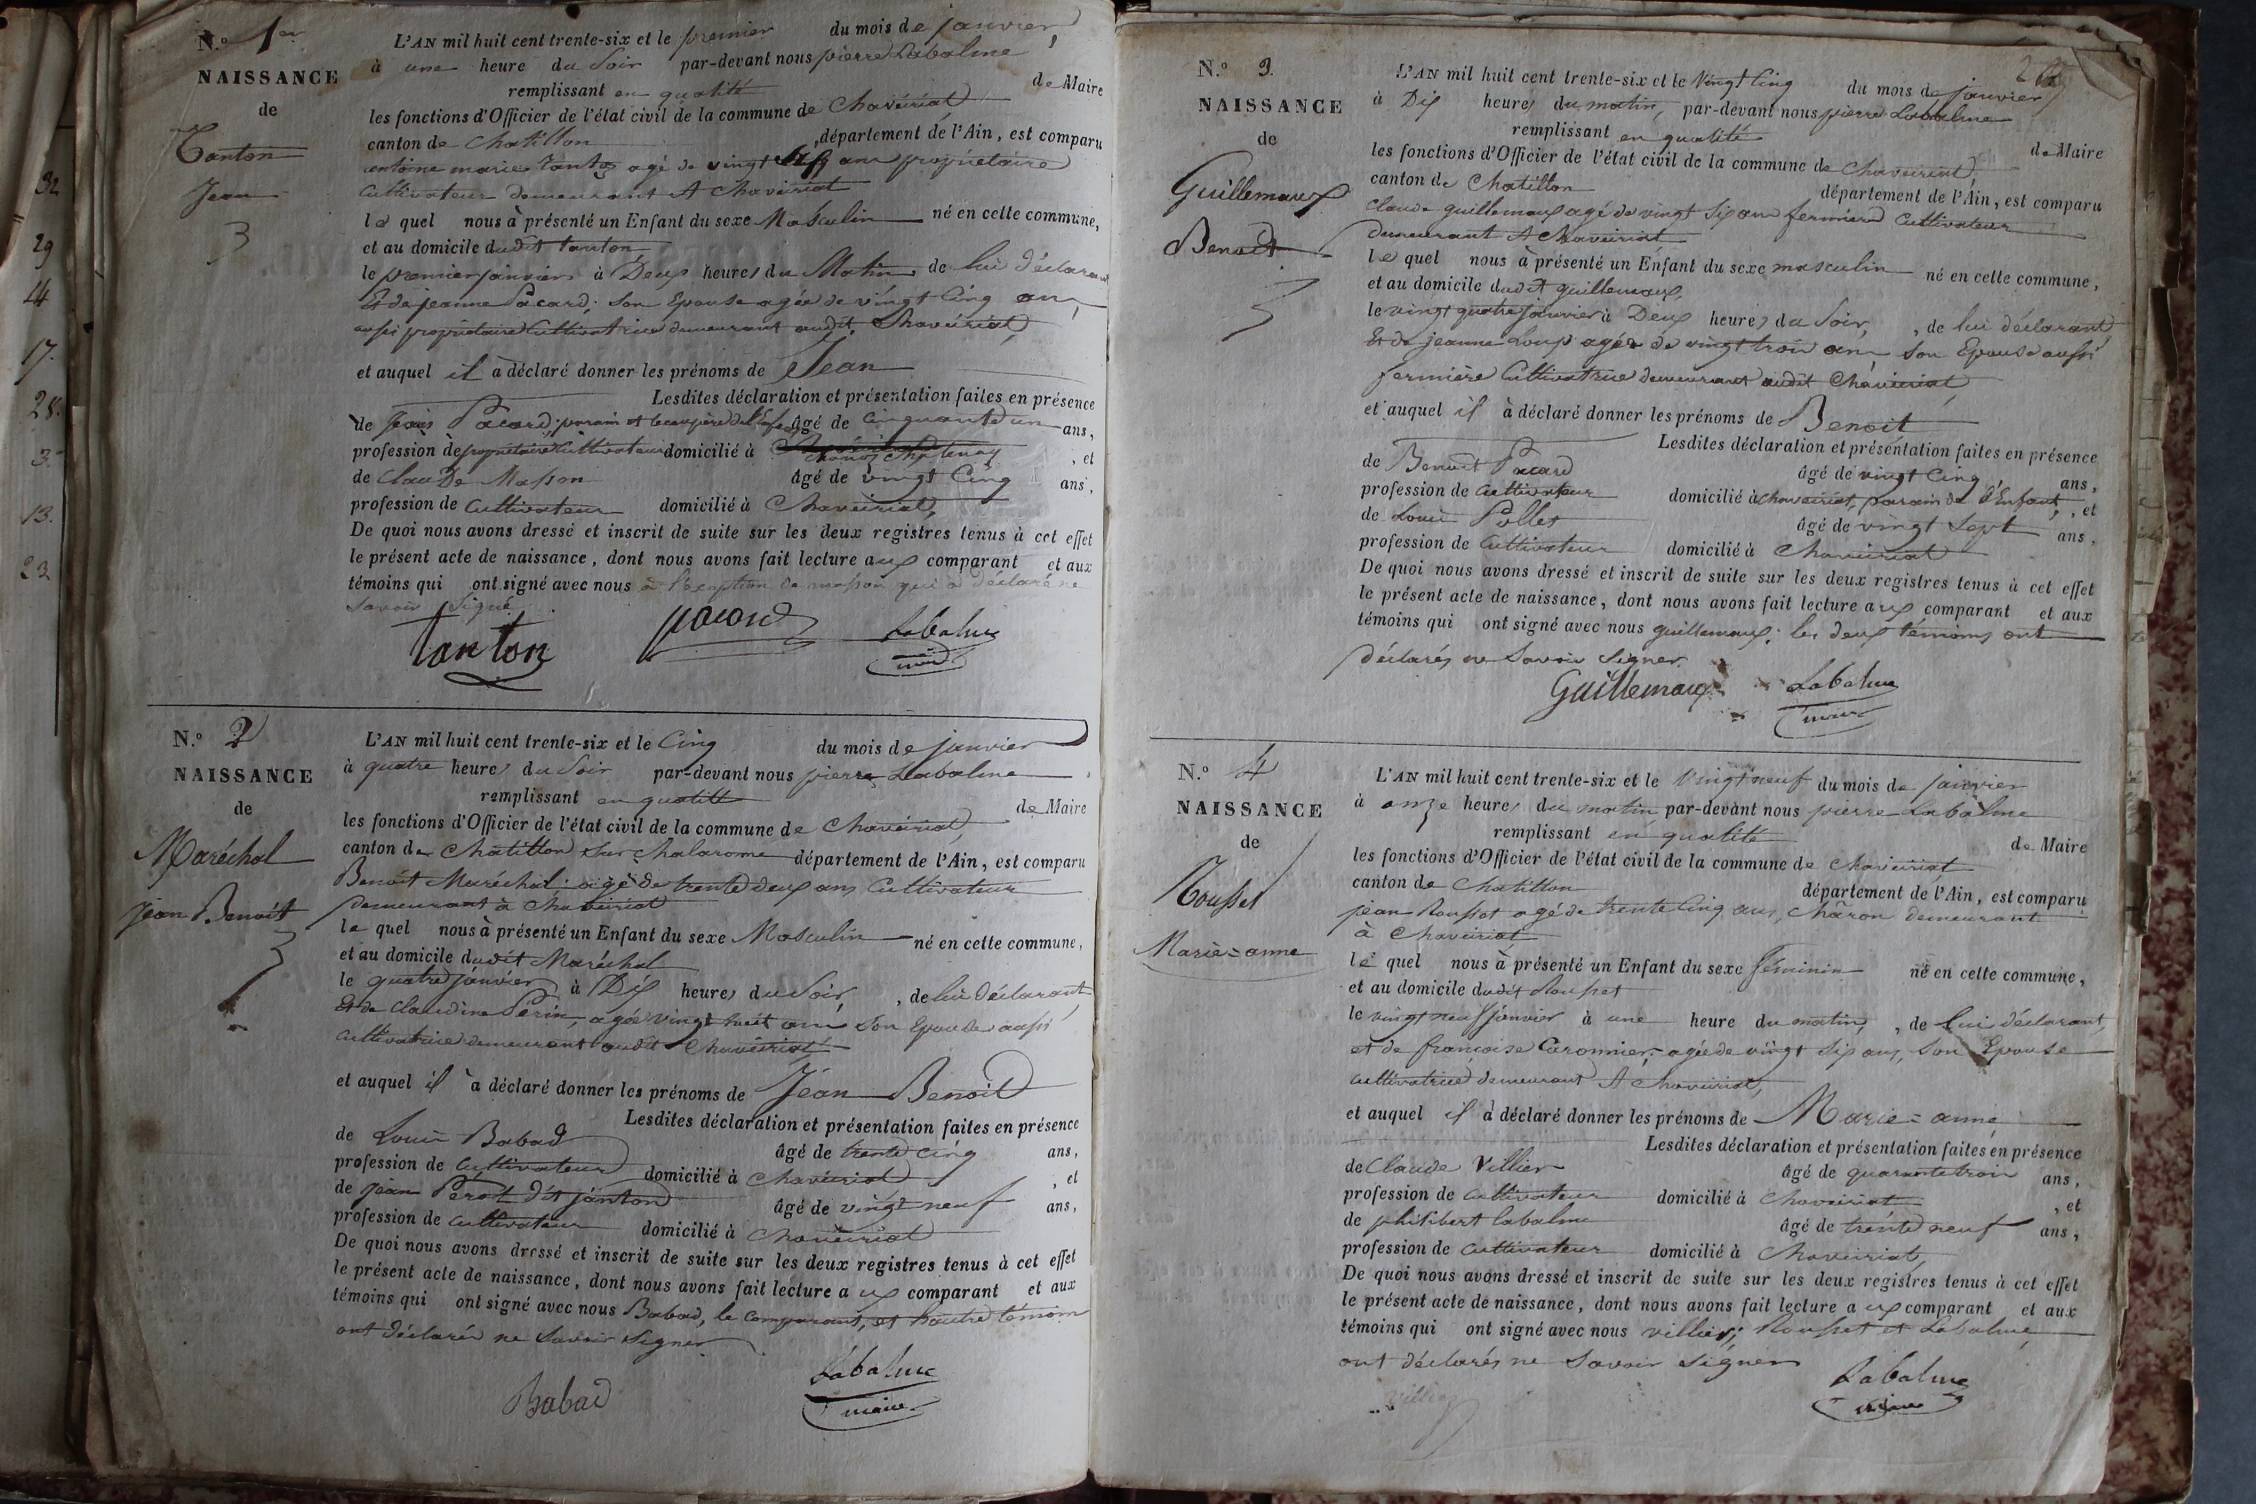 32
29
14
17.
28.
3.
13.
23
N.º 1er
NAISSANCE
de
Tanton
Jean
3
L'AN mil huit cent trente-six et le premier du mois de janvier,
à une heure du Soir par-devant nous pierre Labalme
remplissant en qualité de Maire
les fonctions d'Officier de l'état civil de la commune de Chaveiriat
canton de Chatillon, département de l'Ain, est comparu
antoine marie tanton agé de vingt ans propriétaire
Cultivateur demeurant A Chaveiriat
le quel nous à présenté un Enfant du sexe Masculin né en cette commune,
et au domicile dudit tanton
le premier janvier à Deux heures du Matin de lui déclarant
Et de jeanne Pacard, son Epouse agée de vingt Cinq ans
aussi propriétaire Cultivatrice demeurant audit Chaveiriat,
et auquel il à déclaré donner les prénoms de Jean
Lesdites déclaration et présentation faites en présence
de Pacard, parain et beaupère de l'Enfant âgé de Cinquante un ans,
profession de propriétaire Cultivateur domicilié à Chatenay, et
de Claude Masson âgé de vingt Cinq ans,
profession de Cultivateur domicilié à Chaveiriat,
De quoi nous avons dressé et inscrit de suite sur les deux registres tenus à cet effet
le présent acte de naissance, dont nous avons fait lecture aux comparant et aux
témoins qui ont signé avec nous à l'exeption de masson qui a déclaré ne
Savoir Signé
tanton pacard Labalme
maire
N.º 2
NAISSANCE
de
Maréchal
jean Benoit
L'AN mil huit cent trente-six et le Cinq du mois de janvier
à quatre heures du Soir par-devant nous pierre Labalme,
remplissant en qualité de Maire
les fonctions d'Officier de l'état civil de la commune de Chaveiriat
canton de Chatillon sur chalarome département de l'Ain, est comparu
Benoit Maréchal, agé de trente deux ans Cultivateur
demeurant à Chaveiriat
le quel nous à présenté un Enfant du sexe Masculin né en cette commune,
et au domicile dudit Maréchal
le quatre janvier à Dix heures du Soir, de lui déclarant
Et de Claudine Perin, agée vingt huit ans Son Epouse aussi
Cultivatrice demeurant audit Chaveiriat
et auquel il à déclaré donner les prénoms de Jean Benoit
Lesdites déclaration et présentation faites en présence
de Louis Babad âgé de trente cinq ans,
profession de Cultivateur domicilié à Chaveiriat, et
de jean Perot dit janton âgé de vingt neuf ans,
profession de Cultivateur domicilié à Chaveiriat
De quoi nous avons dressé et inscrit de suite sur les deux registres tenus à cet effet
le présent acte de naissance, dont nous avons fait lecture aux comparant et aux
témoins qui ont signé avec nous Babad, le comparant, et l'autre témoin
ont déclarés ne Savoir Signer
Babad Labalme
maire
N.º 3.
NAISSANCE
de
Guillemaux
Benoit
L'AN mil huit cent trente-six et le Vingt Cinq du mois de janvier
à Dix heures du matin, par-devant nous pierre Labalme
remplissant en qualité de Maire
les fonctions d'Officier de l'état civil de la commune de Chaveiriat
canton de Chatillon département de l'Ain, est comparu
Claude guillemaux agé de vingt six ans fermier Cultivateur
demeurant A Chaveiriat
le quel nous à présenté un Enfant du sexe masculin né en cette commune,
et au domicile dudit guillemaux,
le vingt quatre janvier à Deux heures du Soir, de lui déclarant
Et de jeanne Loup agée de vingt trois ans Son Epouse aussi
fermière Cultivatrice demeurant audit Chaveiriat,
et auquel il à déclaré donner les prénoms de Benoit
Lesdites déclaration et présentation faites en présence
de Benoit Pacard âgé de vingt Cinq ans,
profession de Cultivateur domicilié à Chaveiriat, parain de l'Enfant, et
de Louis Pollet âgé de vingt Sept ans,
profession de Cultivateur domicilié à Chaveiriat
De quoi nous avons dressé et inscrit de suite sur les deux registres tenus à cet effet
le présent acte de naissance, dont nous avons fait lecture aux comparant et aux
témoins qui ont signé avec nous guillemaux, les deux témoins ont
déclarés ne Savoir Signer.
Guillemaux Labalme
maire
N.º 4
NAISSANCE
de
Rousset
Marie=anne
L'AN mil huit cent trente-six et le Vingt neuf du mois de janvier
à onze heures du matin par-devant nous pierre Labalme
remplissant en qualité de Maire
les fonctions d'Officier de l'état civil de la commune de Chaveiriat
canton de Chatillon département de l'Ain, est comparu
jean Rousset agé de trente Cinq ans, Châron demeurant
à Chaveiriat
le quel nous à présenté un Enfant du sexe féminin né en cette commune,
et au domicile dudit Rousset
le vingt neuf janvier à une heure du matin, de lui déclarant
et de françoise Caronnier, agée de vingt six ans, Son Epouse
Cultivatrice demeurant A Chaveiriat,
et auquel il à déclaré donner les prénoms de Marie=anne
Lesdites déclaration et présentation faites en présence
de Claude Villier âgé de quarante trois ans,
profession de Cultivateur domicilié à Chaveiriat, et
de philibert labalme âgé de trente neuf ans,
profession de Cultivateur domicilié à Chaveiriat,
De quoi nous avons dressé et inscrit de suite sur les deux registres tenus à cet effet
le présent acte de naissance, dont nous avons fait lecture aux comparant et aux
témoins qui ont signé avec nous villier; Rousset et Labalme
ont déclarés ne Savoir Signer
Villier Labalme
maire